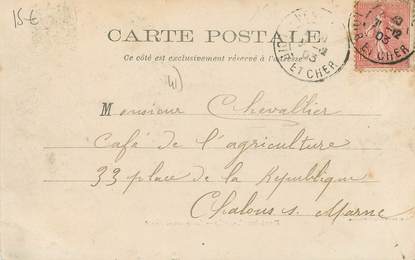 15€
CARTE POSTALE
Ce côté est exclusivement réservé à l'adresse
ET CHER
03
ET CHER
03
Monsieur Chevallier
Café de l'agriculture
33 place de la République
Chalons s. Marne